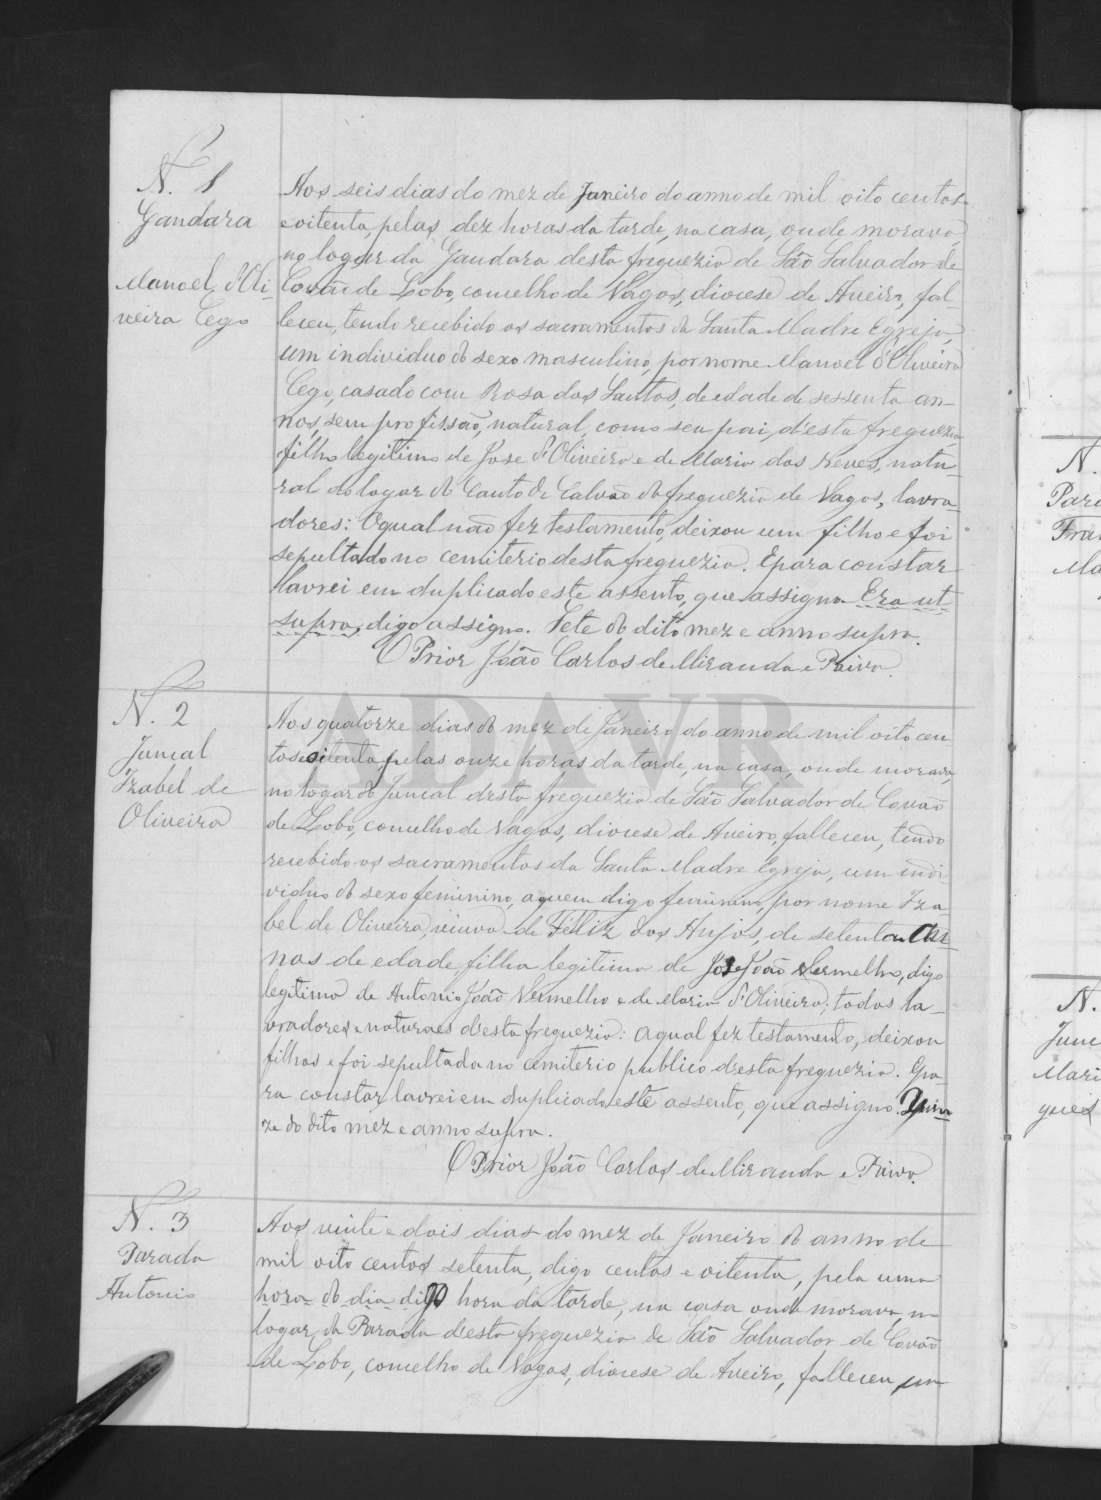 N. 1
Gandara
Manoel d'Oli-
veira Cego
Aos seis dias do mez de Janeiro do anno de mil oito centos
e oitenta, pelas dez horas da tarde, na casa, onde morava,
no logar da Gandara desta freguezia de São Salvador de
Covão de Lobo, concelho de Vagos, diocese de Aveiro, fal-
leceu, tendo recebido os sacramentos da Santa Madre Egreja,
um individuo do sexo masculino, por nome Manoel d'Oliveira
Cego, casado com Rosa dos Santos, de edade de sessenta an-
nos, sem profissão, natural, como seu pai, d'esta freguezia,
filho legitimo de Jose d'Oliveira e de Maria das Neves, natu-
ral do logar do Canto de Calvão da freguezia de Vagos, lavra-
dores: O qual não fez testamento, deixou um filho e foi
sepultado no cemiterio desta freguezia. E para constar
lavrei em duplicado este assento, que assigno Era ut
supra, digo assigno. Sete do dito mez e anno supra.
O Prior João Carlos de Miranda e Paiva.
N. 2
Juncal
Izabel de
Oliveira
Aos quatorze dias do mez de Janeiro do anno de mil oito cen-
tos e oitenta pelas onze horas da tarde, na casa, onde morava,
no logar do Juncal desta freguezia de São Salvador de Covão
de Lobo, concelho de Vagos, diocese de Aveiro, falleceu, tendo
recebido os sacramentos da Santa Madre Egreja, um indi-
viduo do sexo feminino, a quem digo feminino, por nome Iza-
bel de Oliveira, viuva de Feliz dos Anjos, de setenta an-
nos de edade, filha legitima de Jose João Vermelho, digo
legitima de Antonio João Vermelho e de Maria d'Oliveira, todos la-
vradores e naturaes d'esta freguezia: a qual fez testamento, deixou
filhos e foi sepultada no cemiterio publico d'esta freguezia. E pa-
ra constar lavrei em duplicado este assento, que assigno. Quin-
ze do dito mez e anno supra.
O Prior João Carlos de Miranda e Paiva.
N. 3
Parada
Antonio
Aos vinte e dois dias do mez de Janeiro do anno de
mil oito centos setenta, digo centos e oitenta, pela uma
hora do dia digo hora da tarde, na casa onde morava, no
logar da Parada d'esta freguezia de São Salvador de Covão
de Lobo, concelho de Vagos, diocese de Aveiro, falleceu um
ADAVR
N.
Para
Fran
Ma
N.
Junc
Mari
gues